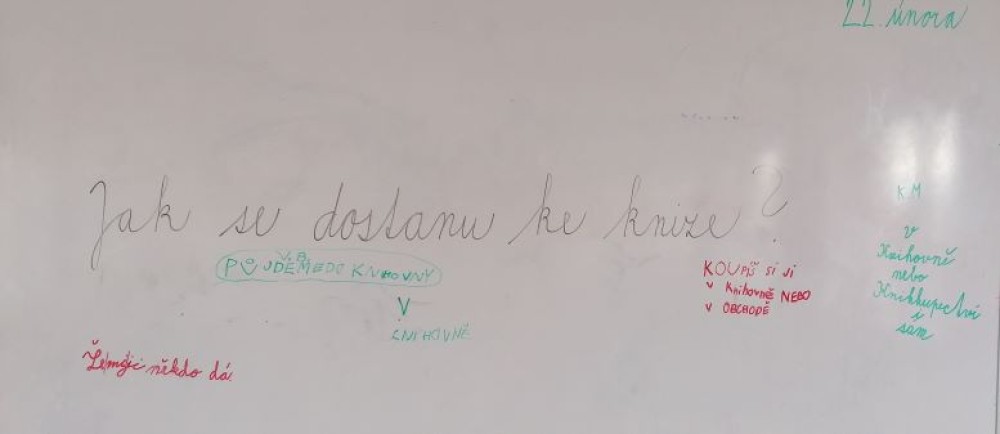 22. února
Jak se dostanu ke knize?
V.B.
PŮJDEME DO KNIHOVNY
V
KNIHOVNĚ
Že mi ji někdo dá
KOUPÍŠ SI JI
v Knihovně NEBO
v OBCHODĚ
KM
v
Knihovně
nebo
Knihkupectví
i
sám